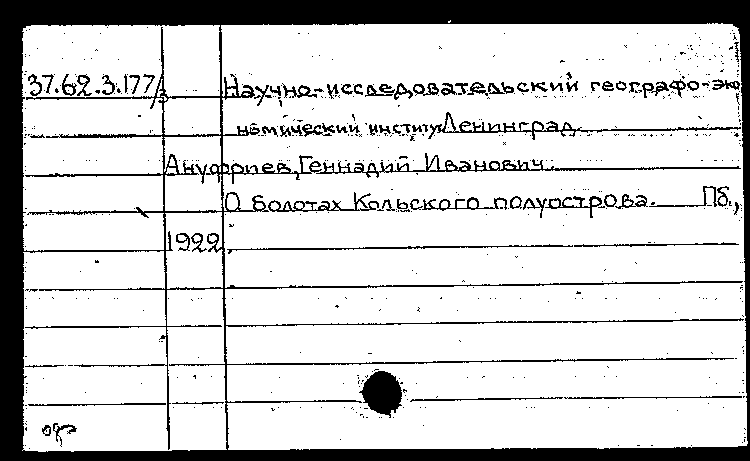 37.62.3.177/3 Научно-исследовательский географо-эко
номический институт Ленинград.
Ануфриев, Геннадий Иванович.
О болотах Кольского полуострова. Пб.,
1922.